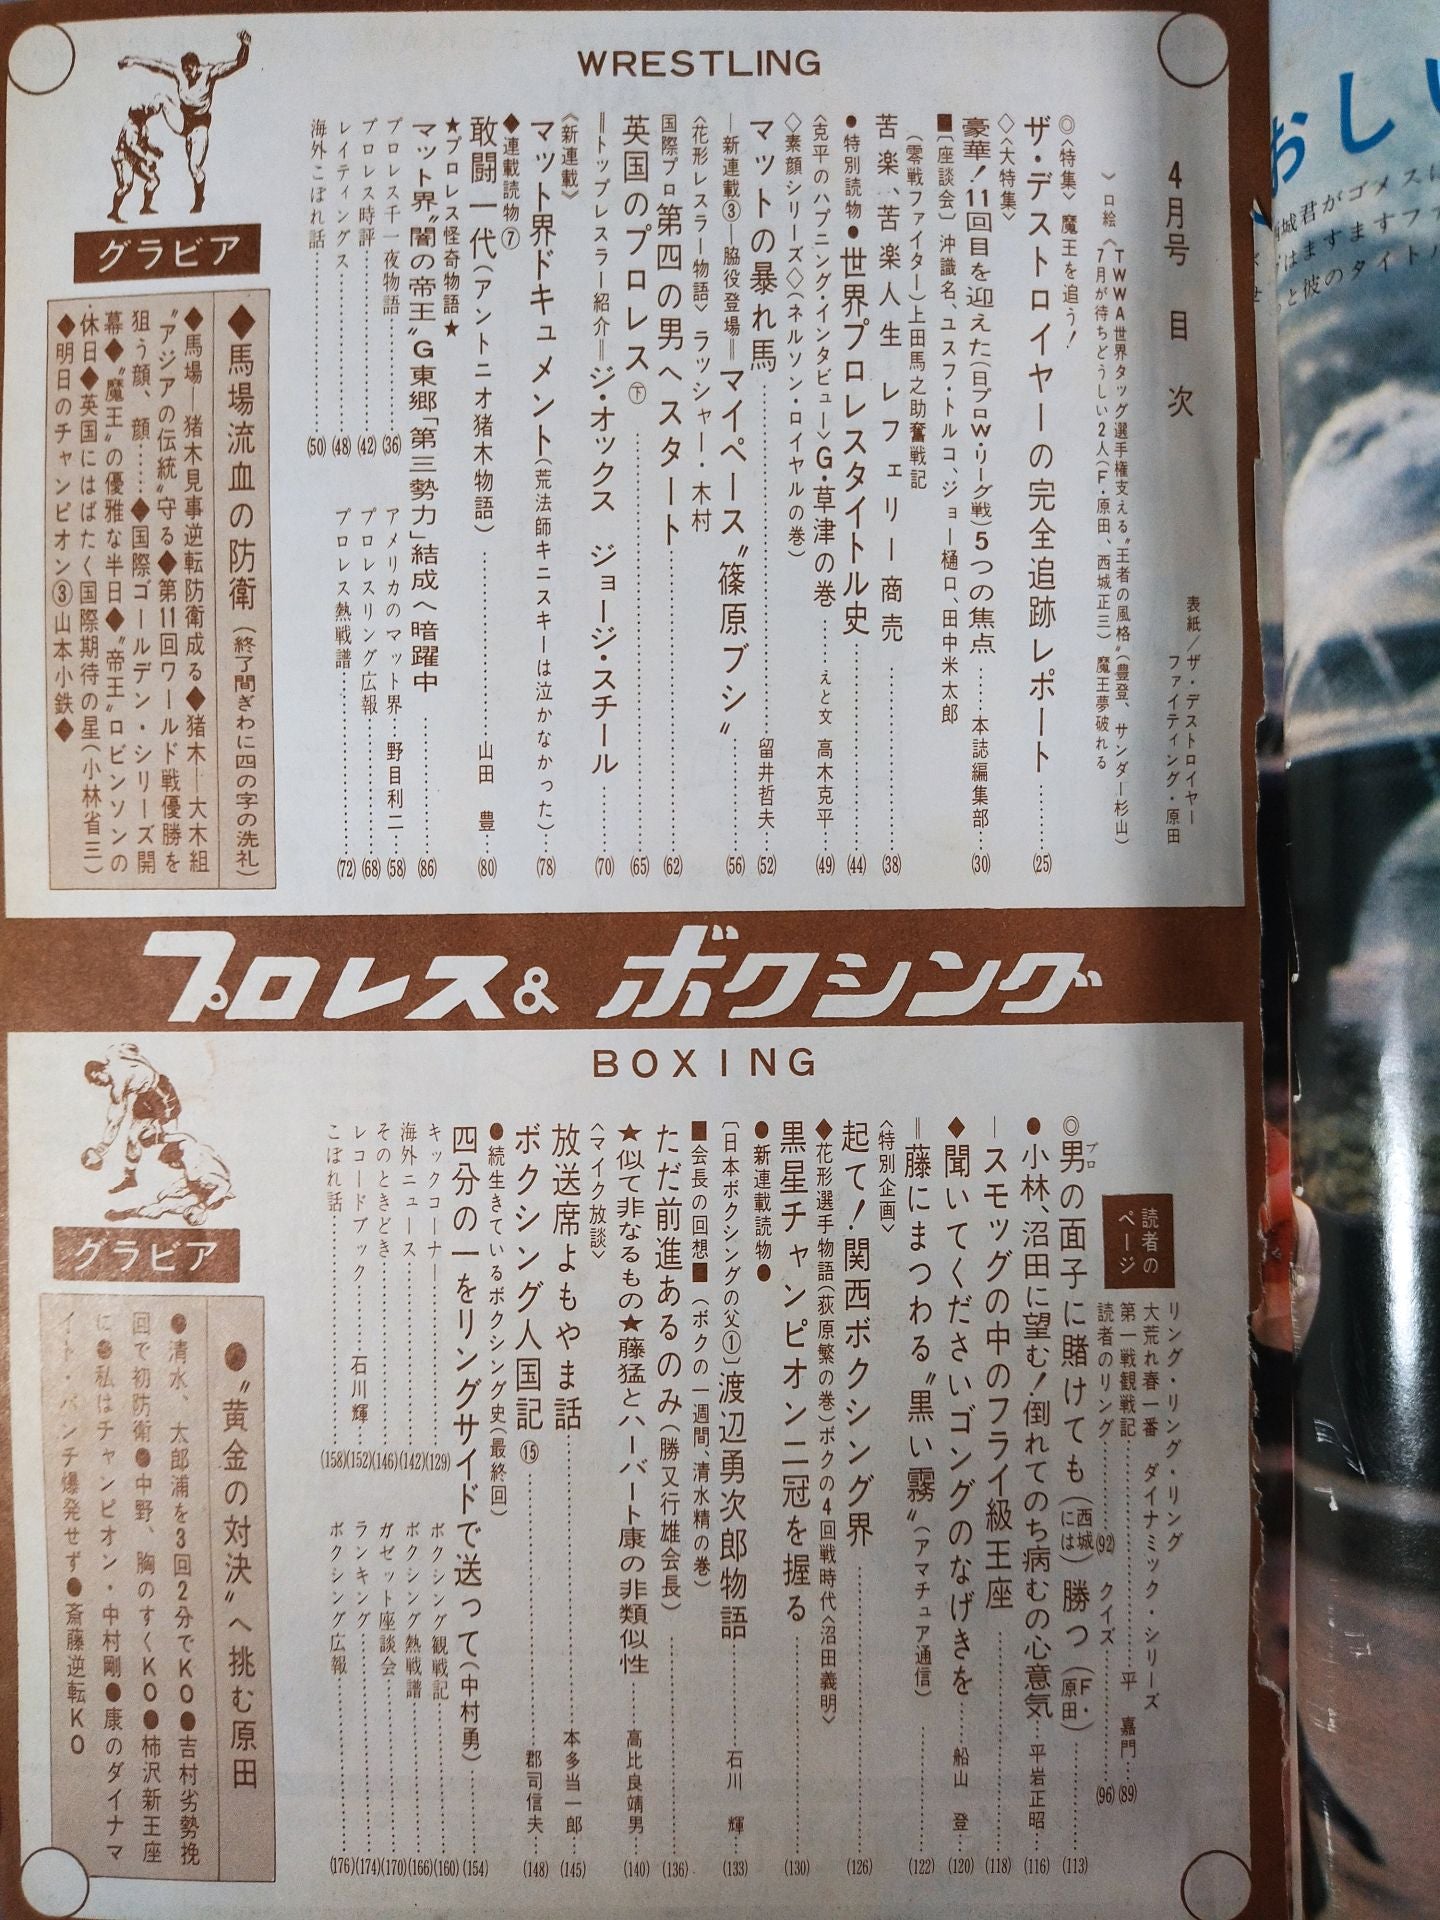 4月号 目次
表紙/ザ・デストロイヤー
ファイティング・原田
WRESTLING
〉口絵〈
TWWA世界タッグ選手権支える〝王者の風格〟(豊登、サンダー杉山)
7月が待ちどうしい2人(F・原田、西城正三) 魔王夢破れる
◎〈特集〉魔王を追う!
ザ・デストロイヤーの完全追跡レポート……(25)
◇〈大特集〉
豪華!11回目を迎えた(日プロW・リーグ戦)5つの焦点……本誌編集部…(30)
■〔座談会〕沖識名、ユスフ・トルコ、ジョー樋口、田中米太郎
苦楽、苦楽人生 レフェリー商売………(38)
(零戦ファイター)上田馬之助奮戦記
●特別読物●世界プロレスタイトル史………(44)
〈克平のハプニング・インタビュー〉G・草津の巻……えと文 高木克平…(49)
◇素顔シリーズ◇(ネルソン・ロイヤルの巻)
マットの暴れ馬………留井哲夫…(52)
―新連載③―脇役登場=マイペース〝篠原ブシ〟……(56)
〈花形レスラー物語〉ラッシャー・木村
国際プロ第四の男へスタート………(62)
英国のプロレス㊦………(65)
=トップレスラー紹介=ジ・オックス ジョージ・スチール………(70)
〈新連載〉
マット界ドキュメント(荒法師キニスキーは泣かなかった)…(78)
◆連載読物⑦
敢闘一代(アントニオ猪木物語)………山田 豊…(80)
★プロレス怪奇物語★
マット界〝闇の帝王〟G東郷「第三勢力」結成へ暗躍中………(86)
プロレス千一夜物語………(36)
アメリカのマット界…野目利二…(58)
プロレス時評………(42)
プロレスリング広報………(68)
レイティングス………(48)
プロレス熱戦譜………(72)
海外こぼれ話………(50)
グラビア
◆馬場流血の防衛(終了間ぎわに四の字の洗礼)
◆馬場―猪木見事逆転防衛成る◆猪木―大木組
〝アジアの伝統〟守る◆第11回ワールド戦優勝を
狙う顔、顔……◆国際ゴールデン・シリーズ開
幕◆〝魔王〟の優雅な半日◆〝帝王〟ロビンソンの
休日◆英国にはばたく国際期待の星(小林省三)
◆明日のチャンピオン③山本小鉄◆
プロレス&ボクシング
BOXING
読者の
ページ
リング・リング・リング
大荒れ春一番 ダイナミック・シリーズ
第一戦観戦記………平 嘉門…(89)
読者のリング………(92) クイズ………(96)
◎男の面子に賭けても(西城には)勝つ(F・原田)………(113)
プロ
●小林、沼田に望む!倒れてのち病むの心意気…平岩正昭…(116)
―スモッグの中のフライ級王座………(118)
◆聞いてくださいゴングのなげきを…船山 登…(120)
=藤にまつわる〝黒い霧〟(アマチュア通信)………(122)
〈特別企画〉
起て!関西ボクシング界………(126)
◆花形選手物語(荻原繁の巻)ボクの4回戦時代〈沼田義明〉
黒星チャンピオン二冠を握る………(130)
●新連載読物●
〔日本ボクシングの父①〕渡辺勇次郎物語………石川 輝…(133)
■会長の回想■(ボクの一週間、清水精の巻)
ただ前進あるのみ(勝又行雄会長)………(136)
★似て非なるもの★藤猛とハーバート康の非類似性………高比良靖男…(140)
〈マイク放談〉
放送席よもやま話………本多当一郎…(145)
ボクシング人国記⑮………郡司信夫…(148)
●続生きているボクシング史(最終回)
四分の一をリングサイドで送って(中村勇)………(154)
キックコーナー………(129)
ボクシング観戦記………(160)
海外ニュース………(142)
ボクシング熱戦譜………(166)
そのときどき………(146)
ガゼット座談会………(170)
レコードブック………石川輝…(152)
ランキング………(174)
こぼれ話………(158)
ボクシング広報………(176)
グラビア
●〝黄金の対決〟へ挑む原田
●清水、大郎浦を3回2分でKO●吉村劣勢挽
回で初防衛●中野、胸のすくKO●柿沢新王座
に●私はチャンピオン・中村剛●康のダイナマ
イト・パンチ爆発せず●斎藤逆転KO
おしい